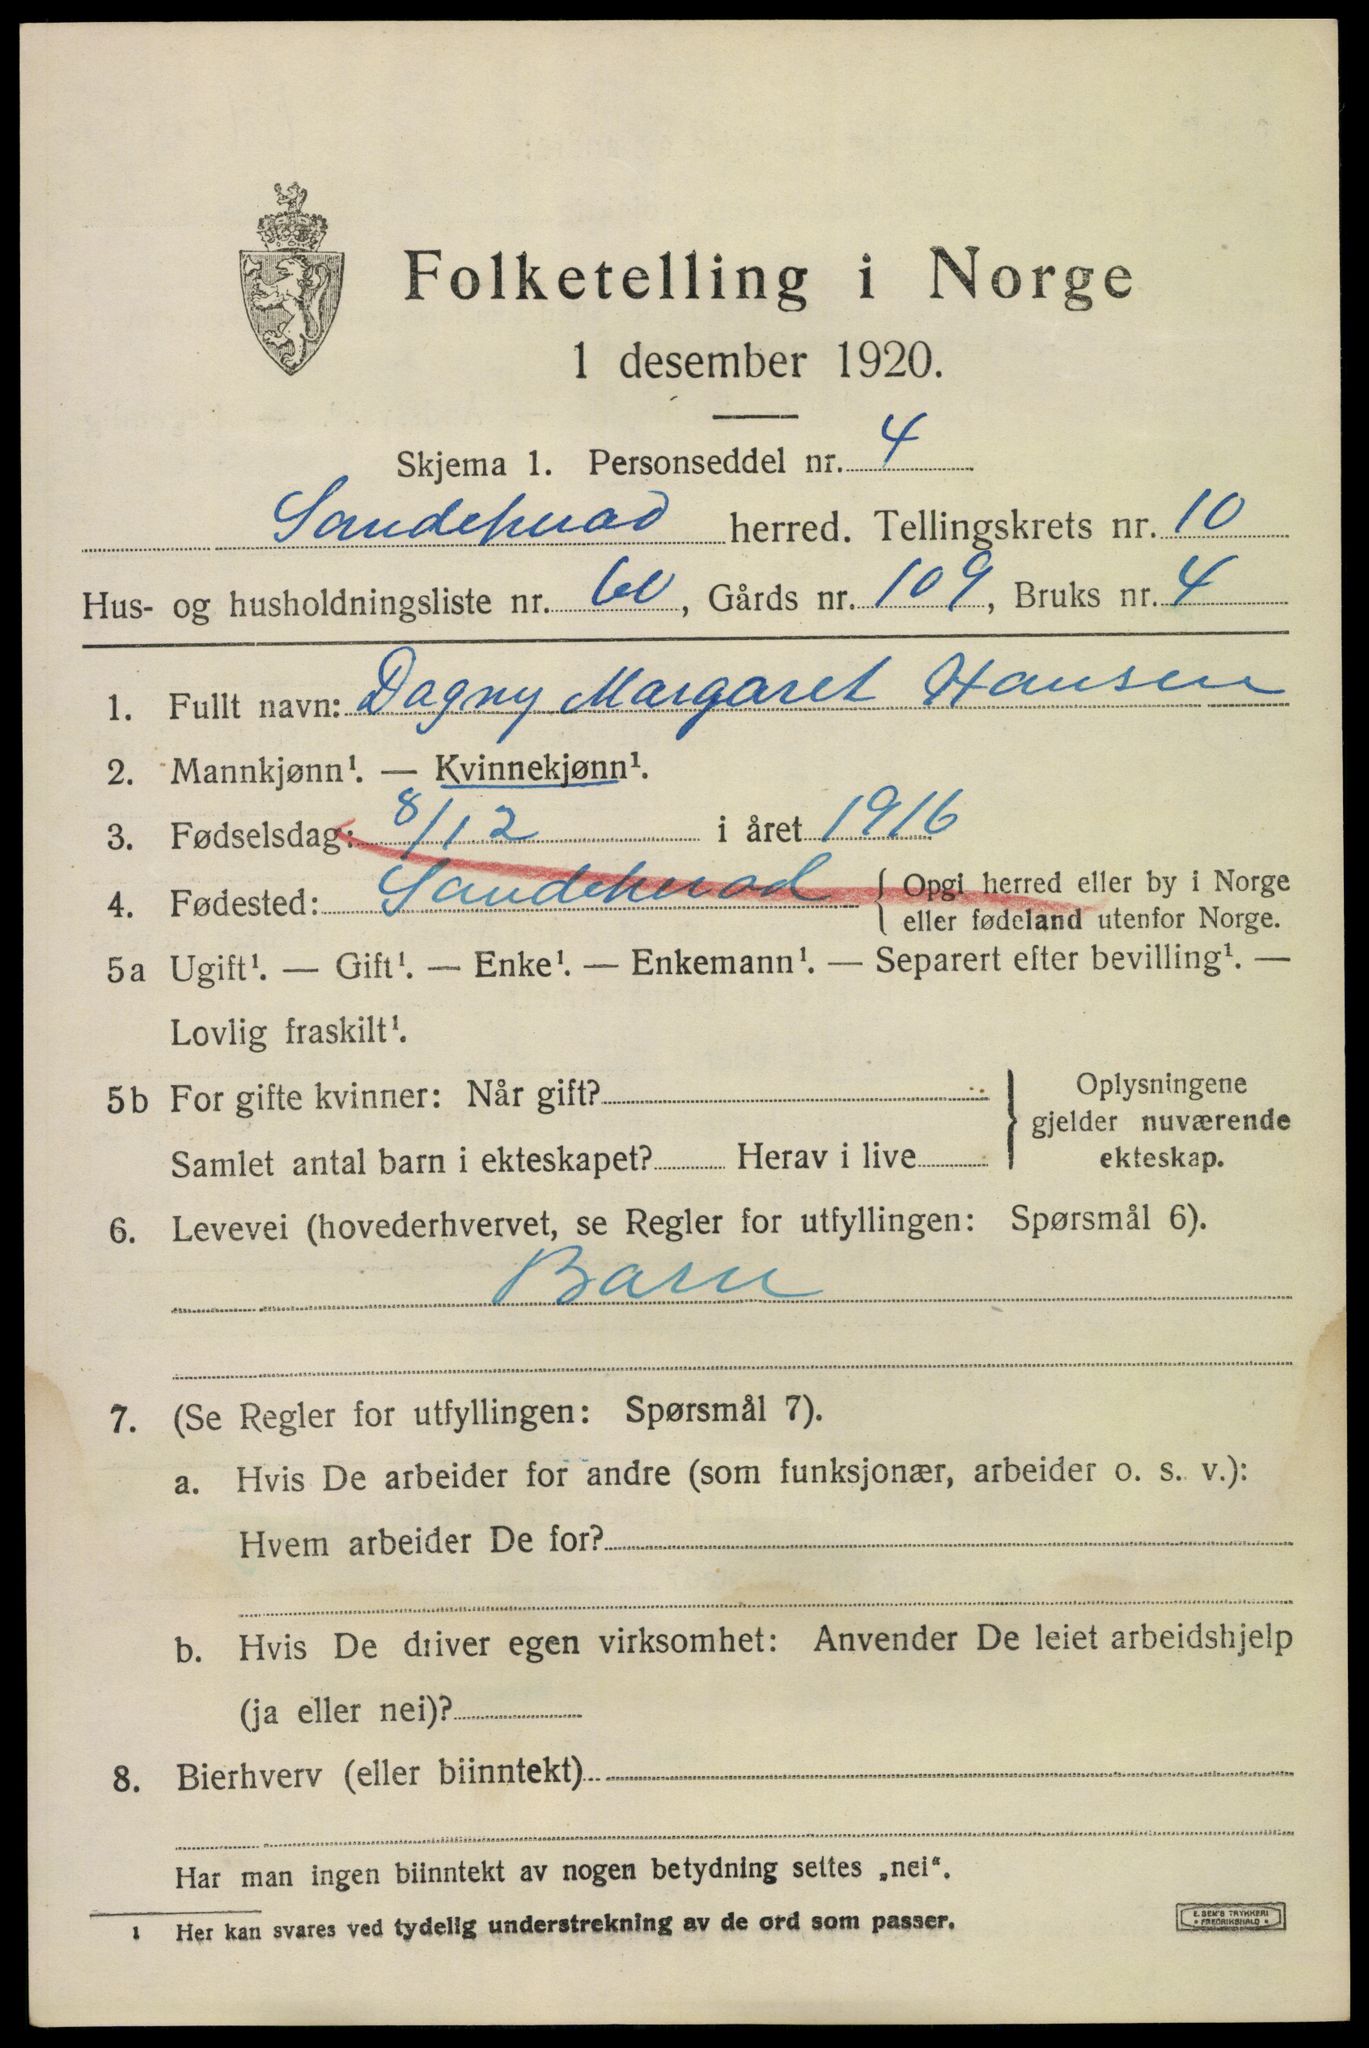 Folketelling i Norge
1 desember 1920.
Skjema 1. Personseddel nr. 4
Sandeherad herred. Tellingskrets nr. 10
Hus- og husholdningsliste nr. 60, Gårds nr. 109, Bruks nr. 4
1. Fullt navn: Dagny Margaret Hansen
2. Mannkjønn¹. — Kvinnekjønn¹.
3. Fødselsdag: 8/12 i året 1916
4. Fødested: Sandeherad { Opgi herred eller by i Norge
eller fødeland utenfor Norge.
5a Ugift¹. — Gift¹. — Enke¹. — Enkemann¹. — Separert efter bevilling¹. —
Lovlig fraskilt¹.
5b For gifte kvinner: Når gift?
Samlet antal barn i ekteskapet? Herav i live
} Oplysningene
gjelder nuværende
ekteskap.
6. Levevei (hovederhvervet, se Regler for utfyllingen: Spørsmål 6).
Barn
7. (Se Regler for utfyllingen: Spørsmål 7).
a. Hvis De arbeider for andre (som funksjonær, arbeider o. s. v.):
Hvem arbeider De for?
b. Hvis De driver egen virksomhet: Anvender De leiet arbeidshjelp
(ja eller nei)?
8. Bierhverv (eller biinntekt)
Har man ingen biinntekt av nogen betydning settes „nei“.
1 Her kan svares ved tydelig understrekning av de ord som passer.
E. SEM'S TRYKKERI
• FREDRIKSHALD •